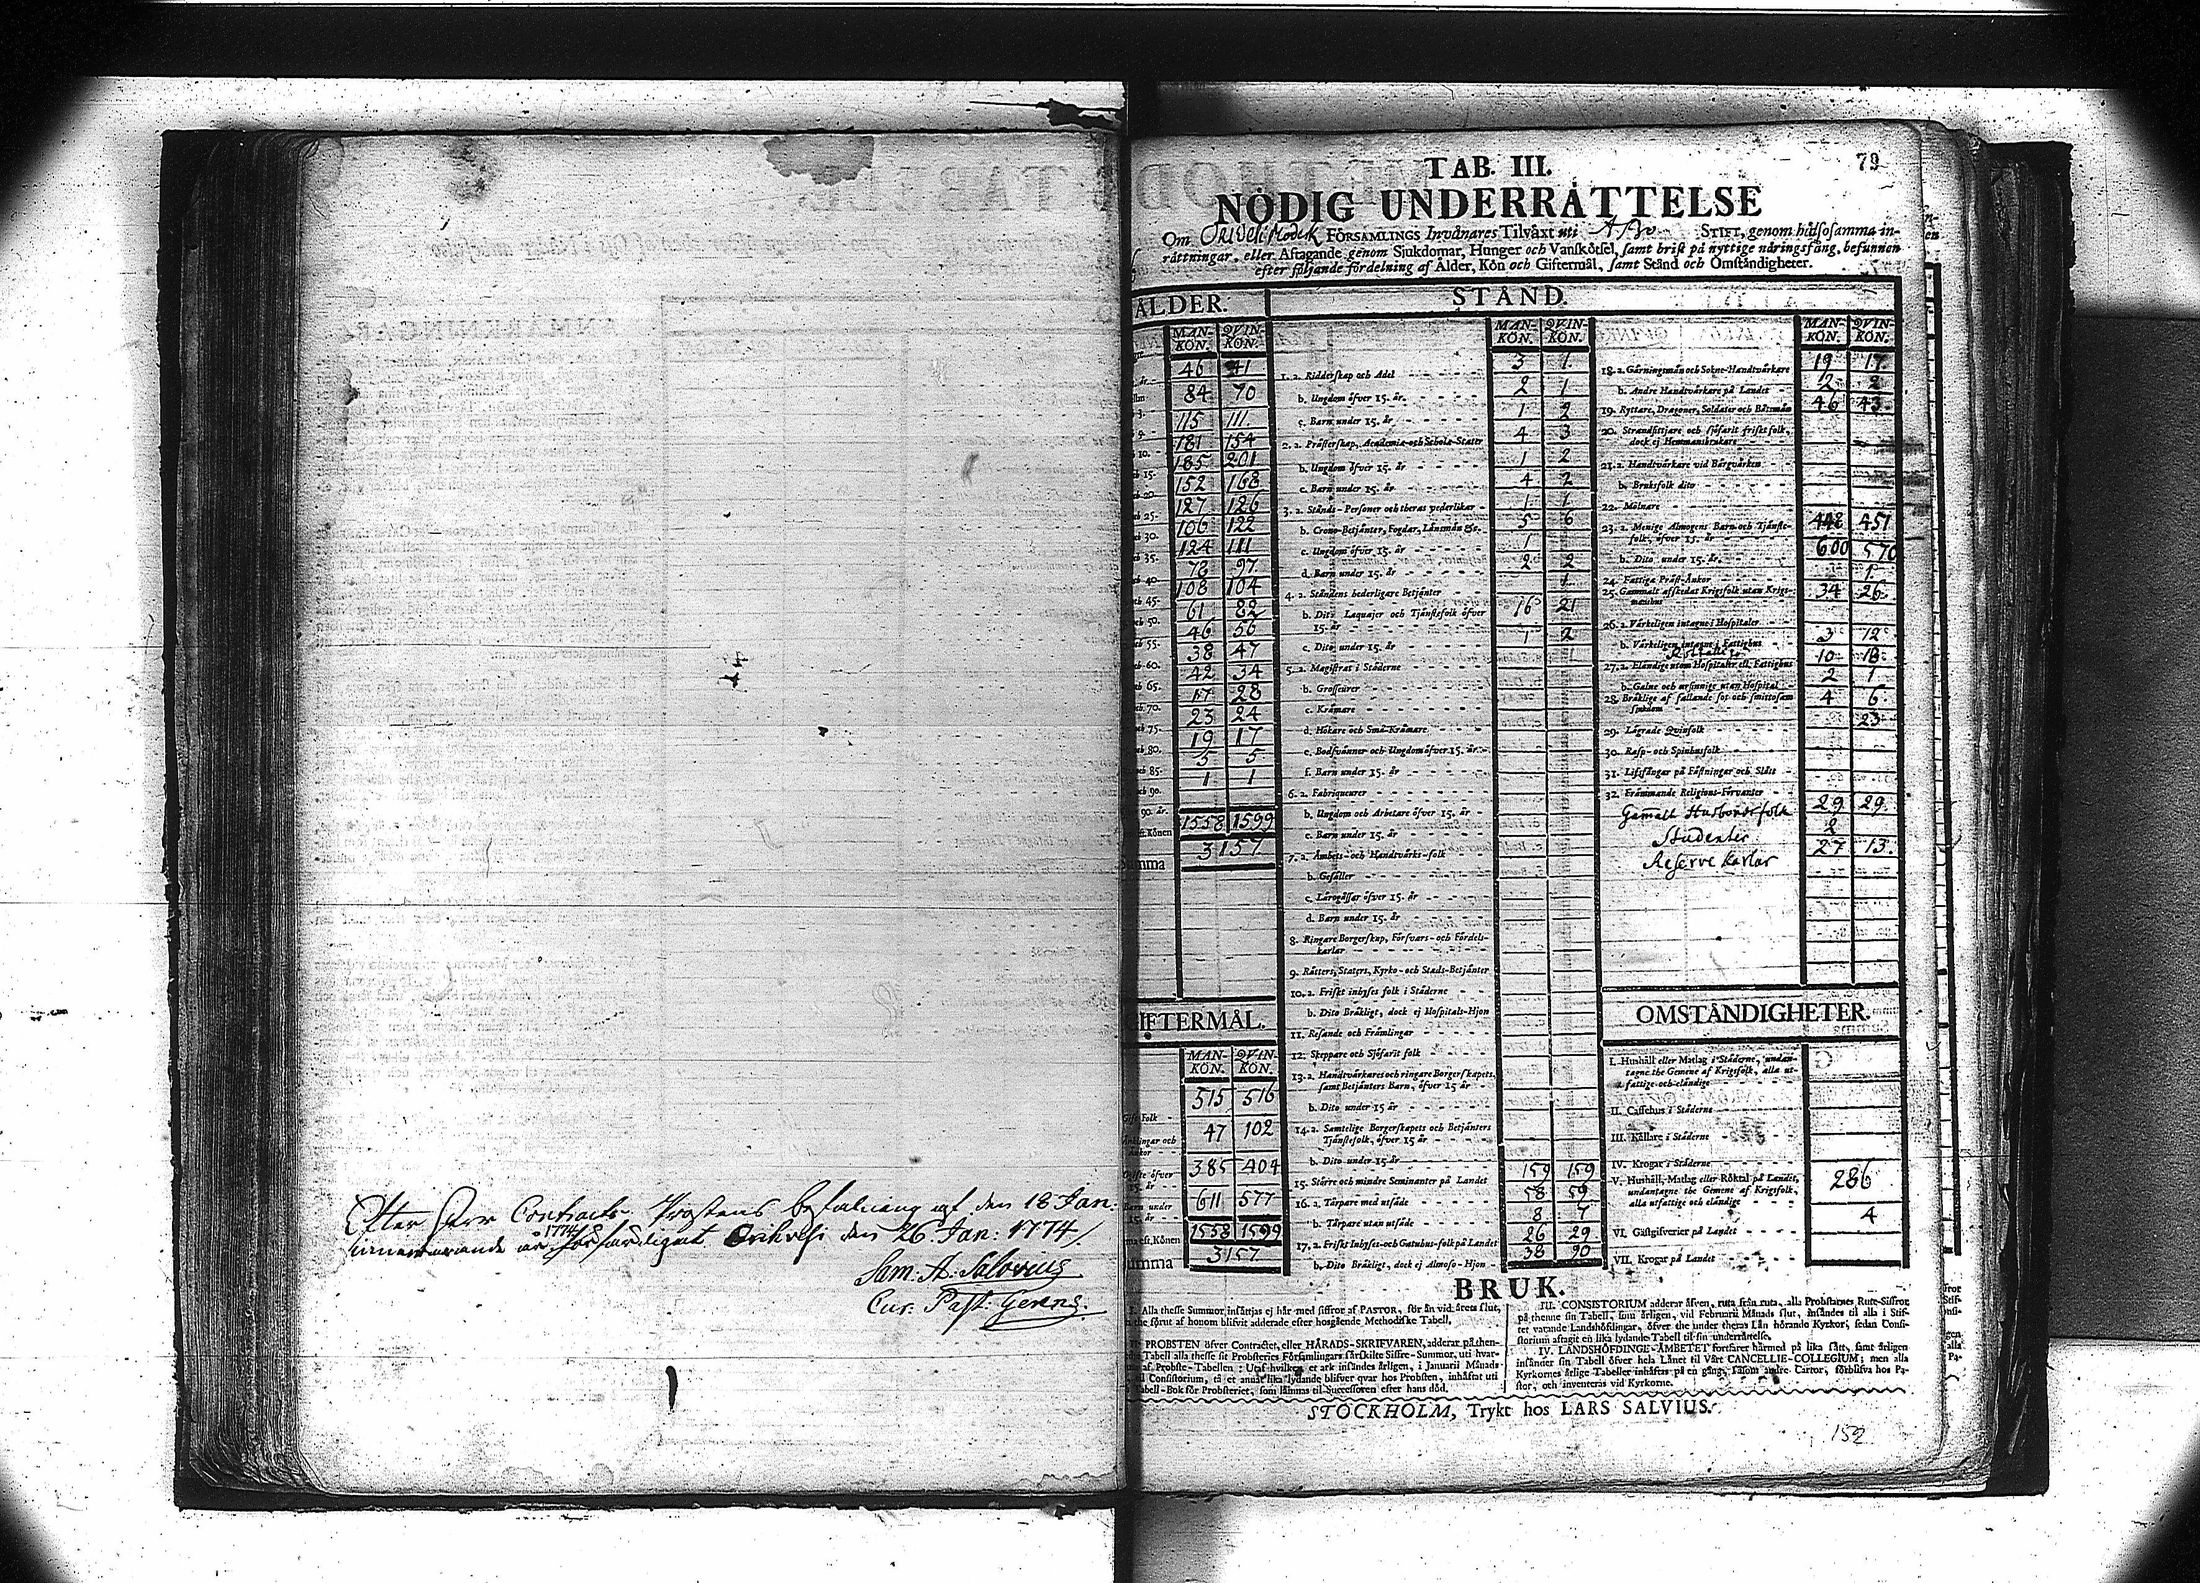 Efter Herr Contracts Prostens befalning af den 18 Jan:
innevarande år 1774 författdigat Orihvesi den 26 Jan: 1774
Sam: A: Salovius
Cur: Past: Gerens.
79
TAB. III.
NÖDIG UNDERRÄTTELSE
Om Oriuesi Moderk FÖRSAMLINGS Invånares Tilväxt uti Åbo STIFT, genom hälsosamma in-
rättningar, eller Aftagande genom Sjukdomar, Hunger och Vanskötsel, samt brist på nyttige näringsfång, befunnen
efter följande fördelning af Ålder, Kön och Giftermål, samt Stånd och Omständigheter.
ÅLDER.
MAN-KÖN. QVIN-KÖN.
46 41
84 70
115 111
181 154
185 201
152 168
127 126
106 122
124 111
78 97
108 104
61 82
46 56
38 47
42 34
17 28
23 24
19 17
5 5
1 1
1558 1599
Summa 3157
GIFTERMÅL.
MAN-KÖN. QVIN-KÖN.
Gift Folk 515 516
47 102
385 404
611 577
1558 1599
Summa 3157
STÅND.
MAN-KÖN. QVIN-KÖN.
1. a. Ridderskap och Adel 3 1
b. Ungdom öfver 15. år. 2 1
c. Barn under 15. år 1 2
2. a. Prästerskap, Academiæ-och Schole-Stater 4 3
b. Ungdom öfver 15. år 1 2
c. Barn under 15. år 4 2
3. a. Stånds-Personer och theras vederlikar 1 1
b. Crono-Betjänter, Fogdar, Länsmän &c. 5 6
c. Ungdom öfver 15. år 1
d. Barn under 15. år 2 2
4. a. Ståndens hederligare Betjänter 1
b. Dito Laquajer och Tjänstefolk öfver
15. år 16 21
c. Dito under 15. år 1 2
5. a. Magistrat i Städerne 1
b. Grosseurer
c. Krämare
d. Hökare och Små-Krämare
e. Bodsvänner och Ungdom öfver 15. år
f. Barn under 15. år
6. a. Fabriqueurer
b. Ungdom och Arbetare öfver 15. år
c. Barn under 15. år
7. a. Ämbets-och Handtvärks-folk
b. Gesäller
c. Lärogåssar öfver 15. år
d. Barn under 15. år
8. Ringare Borgerskap, Försvars-och Fördels-
karlar
9. Rätters, Staters, Kyrko-och Stads-Betjänter
10. a. Friskt inhyses folk i Städerne
b. Dito Bräkligt, dock ej Hospitals-Hjon
11. Resande och Främlingar
12. Skeppare och Sjöfarit folk
13. a. Handtvärkares och ringare Borgerskapets,
samt Betjänters Barn, öfver 15 år
b. Dito under 15 år
14. a. Samtelige Borgerskapets och Betjänters
Tjänstefolk, öfver 15 år
b. Dito under 15 år
15. Större och mindre Seminanter på Landet 159 159
16. a. Torpare med utsäde 58 59
b. Torpare utan utsäde 8 7
17. a. Friskt Inhyses-och Gatuhus-folk på Landet 26 29
b. Dito Bräkligt, dock ej Almoso-Hjon 38 90
MAN-KÖN. QVIN-KÖN.
18. a. Gärningsmän och Sokne-Handtvärkare 19 17
b. Andre Handtvärkare på Landet 2 2
19. Ryttare, Dragoner, Soldater och Båtsmän 46 43
20. Strandsittjare och sjöfarit friskt folk,
dock ej Hemmansbrukare
21. a. Handtvärkare vid Bärgvärken
b. Bruksfolk dito
22. Mölnare
23. a. Menige Almogens Barn och Tjänste-
folk, öfver 15. år 448 451
b. Dito under 15. år. 600 570
24. Fattiga Präst-Änkor 1
25. Gammalt afskedat Krigsfolk utan Krigs-
manshus 34 26
26. a. Värkeligen intagne i Hospitaler
b. Värkeligen intagne i Fattighus 3 12
27. a. Eländige utom Hospitaler ell. Fattighus 10 18
b. Galne och ursinnige utan Hospital 2 1
28. Bräklige af fallande sot och smittosam
sjukdom 4 6
29. Lägrade Qvinfolk 23
30. Rasp-och Spinhusfolk
31. Lifsfångar på Fästningar och Slått
32. Främmande Religions-Förvanter
Gamalt Husbondsfolk 29 29
Studenter 2
Reserve karlar 27 13
OMSTÄNDIGHETER.
I. Hushåll eller Matlag i Städerne, undan-
tagne the Gemene af Krigsfolk, alla ut-
fattige och eländige
II. Caffehus i Städerne
III. Källare i Städerne
IV. Krogar i Städerne
V. Hushåll, Matlag eller Röktal på Landet,
undantagne the Gemene af Krigsfolk,
alla utfattige och eländige 286
VI. Gästgifverier på Landet 4
VII. Krogar på Landet
BRUK.
I. Alla thesse Summor insättjas ej här med siffror af PASTOR, för än vid årets slut,
the förut af honom blifvit adderade efter hosgående Methodiske Tabell.
II. PROBSTEN öfver Contractet, eller HÄRADS-SKRIFVAREN, adderar på then-
Tabell alla thesse sit Probsteries Församlingars särskilte Siffre-Summor, uti hvar-
af Probste-Tabellen: Utaf hvilken et ark insändes årligen, i Januarii Månads
Consistorium, tå et annat lika lydande blifver qvar hos Probsten, inhäftat uti
Tabell-Bok för Probsteriet, som lämnas til Successoren efter hans död.
III. CONSISTORIUM adderar äfven, ruta från ruta, alla Probstarnes Rute-Siffror
på thenne sin Tabell, som årligen, vid Februarii Månads slut, insändes til alla i Stif-
tet varande Landshöfdingar, öfver the under theras Län hörande Kyrkor, sedan Consi-
storium aftagit en lika lydande Tabell til sin underrättelse.
IV. LANDSHÖFDINGE-ÄMBETET fortfarer härmed på lika sätt, samt årligen
insänder sin Tabell öfver hela Länet til Vårt CANCELLIE-COLLEGIUM; men alla
Kyrkornes årlige Tabeller inhäftas på en gång, såsom andre Cartor, förblifva hos Pa-
stor, och inventeras vid Kyrkorne.
STOCKHOLM, Trykt hos LARS SALVIUS.
152